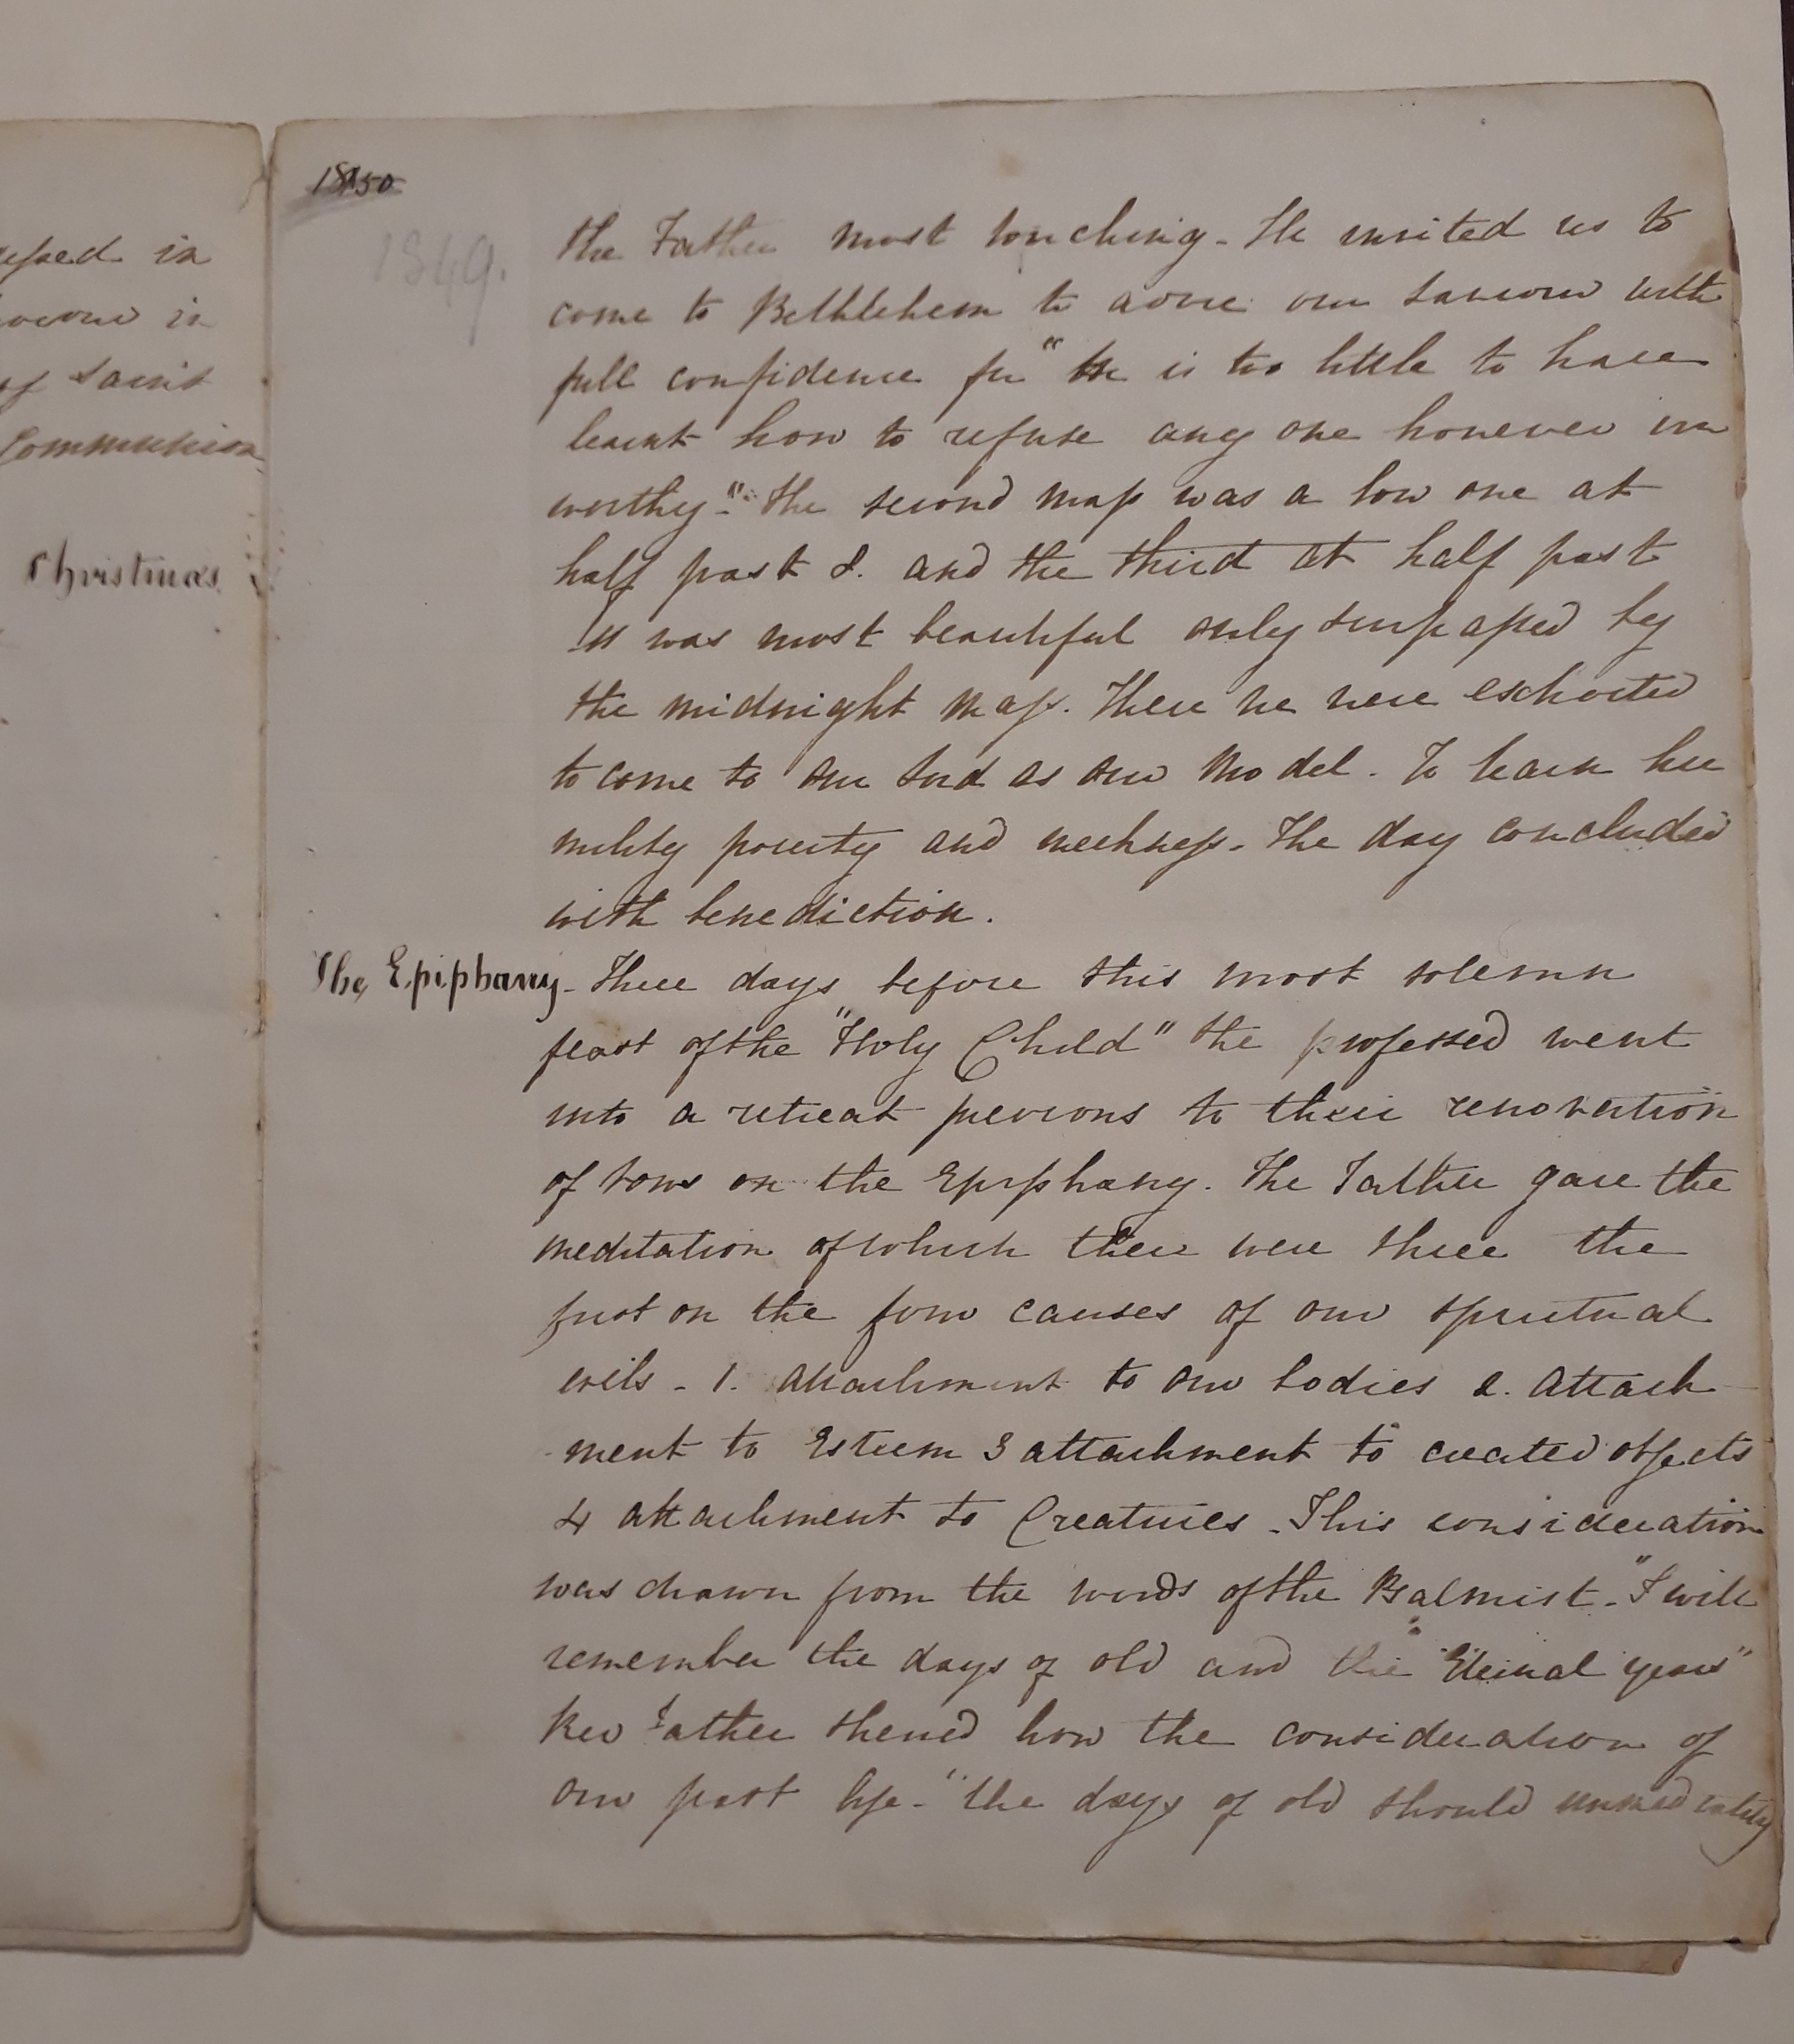 ssed in
in
of Saint
Communion
Christmas.
1850
1849.
the Father most touching - He invited us to
come to Bethlehem to adore our Saviour with
full confidence for "He is too little to have
learnt how to refuse any one however un
worthy." The second mass was a low one at
half past 8. and the third at half past
11 was most beautiful only surpassed by
the midnight Mass. There we were exhorted
to come to our Lord as our Model. To learn hu
mility poverty and meekness - The day concluded
with benediction.
The Epiphany - Three days before this most solemn
feast of the "Holy Child" the professed went
into a retreat previous to their renovation
of vows on the Epiphany. The Father gave the
meditation of which there were three the
first on the four causes of our spiritual
evils - 1. Attachment to our bodies 2. Attach
ment to Esteem 3 attachment to created objects
4 attachment to Creatures - This consideration
was drawn from the words of the Psalmist - "I will
remember the days of old and the Eternal years"
Rev Father shewed how the consideration of
our past life - "the days of old should immediately